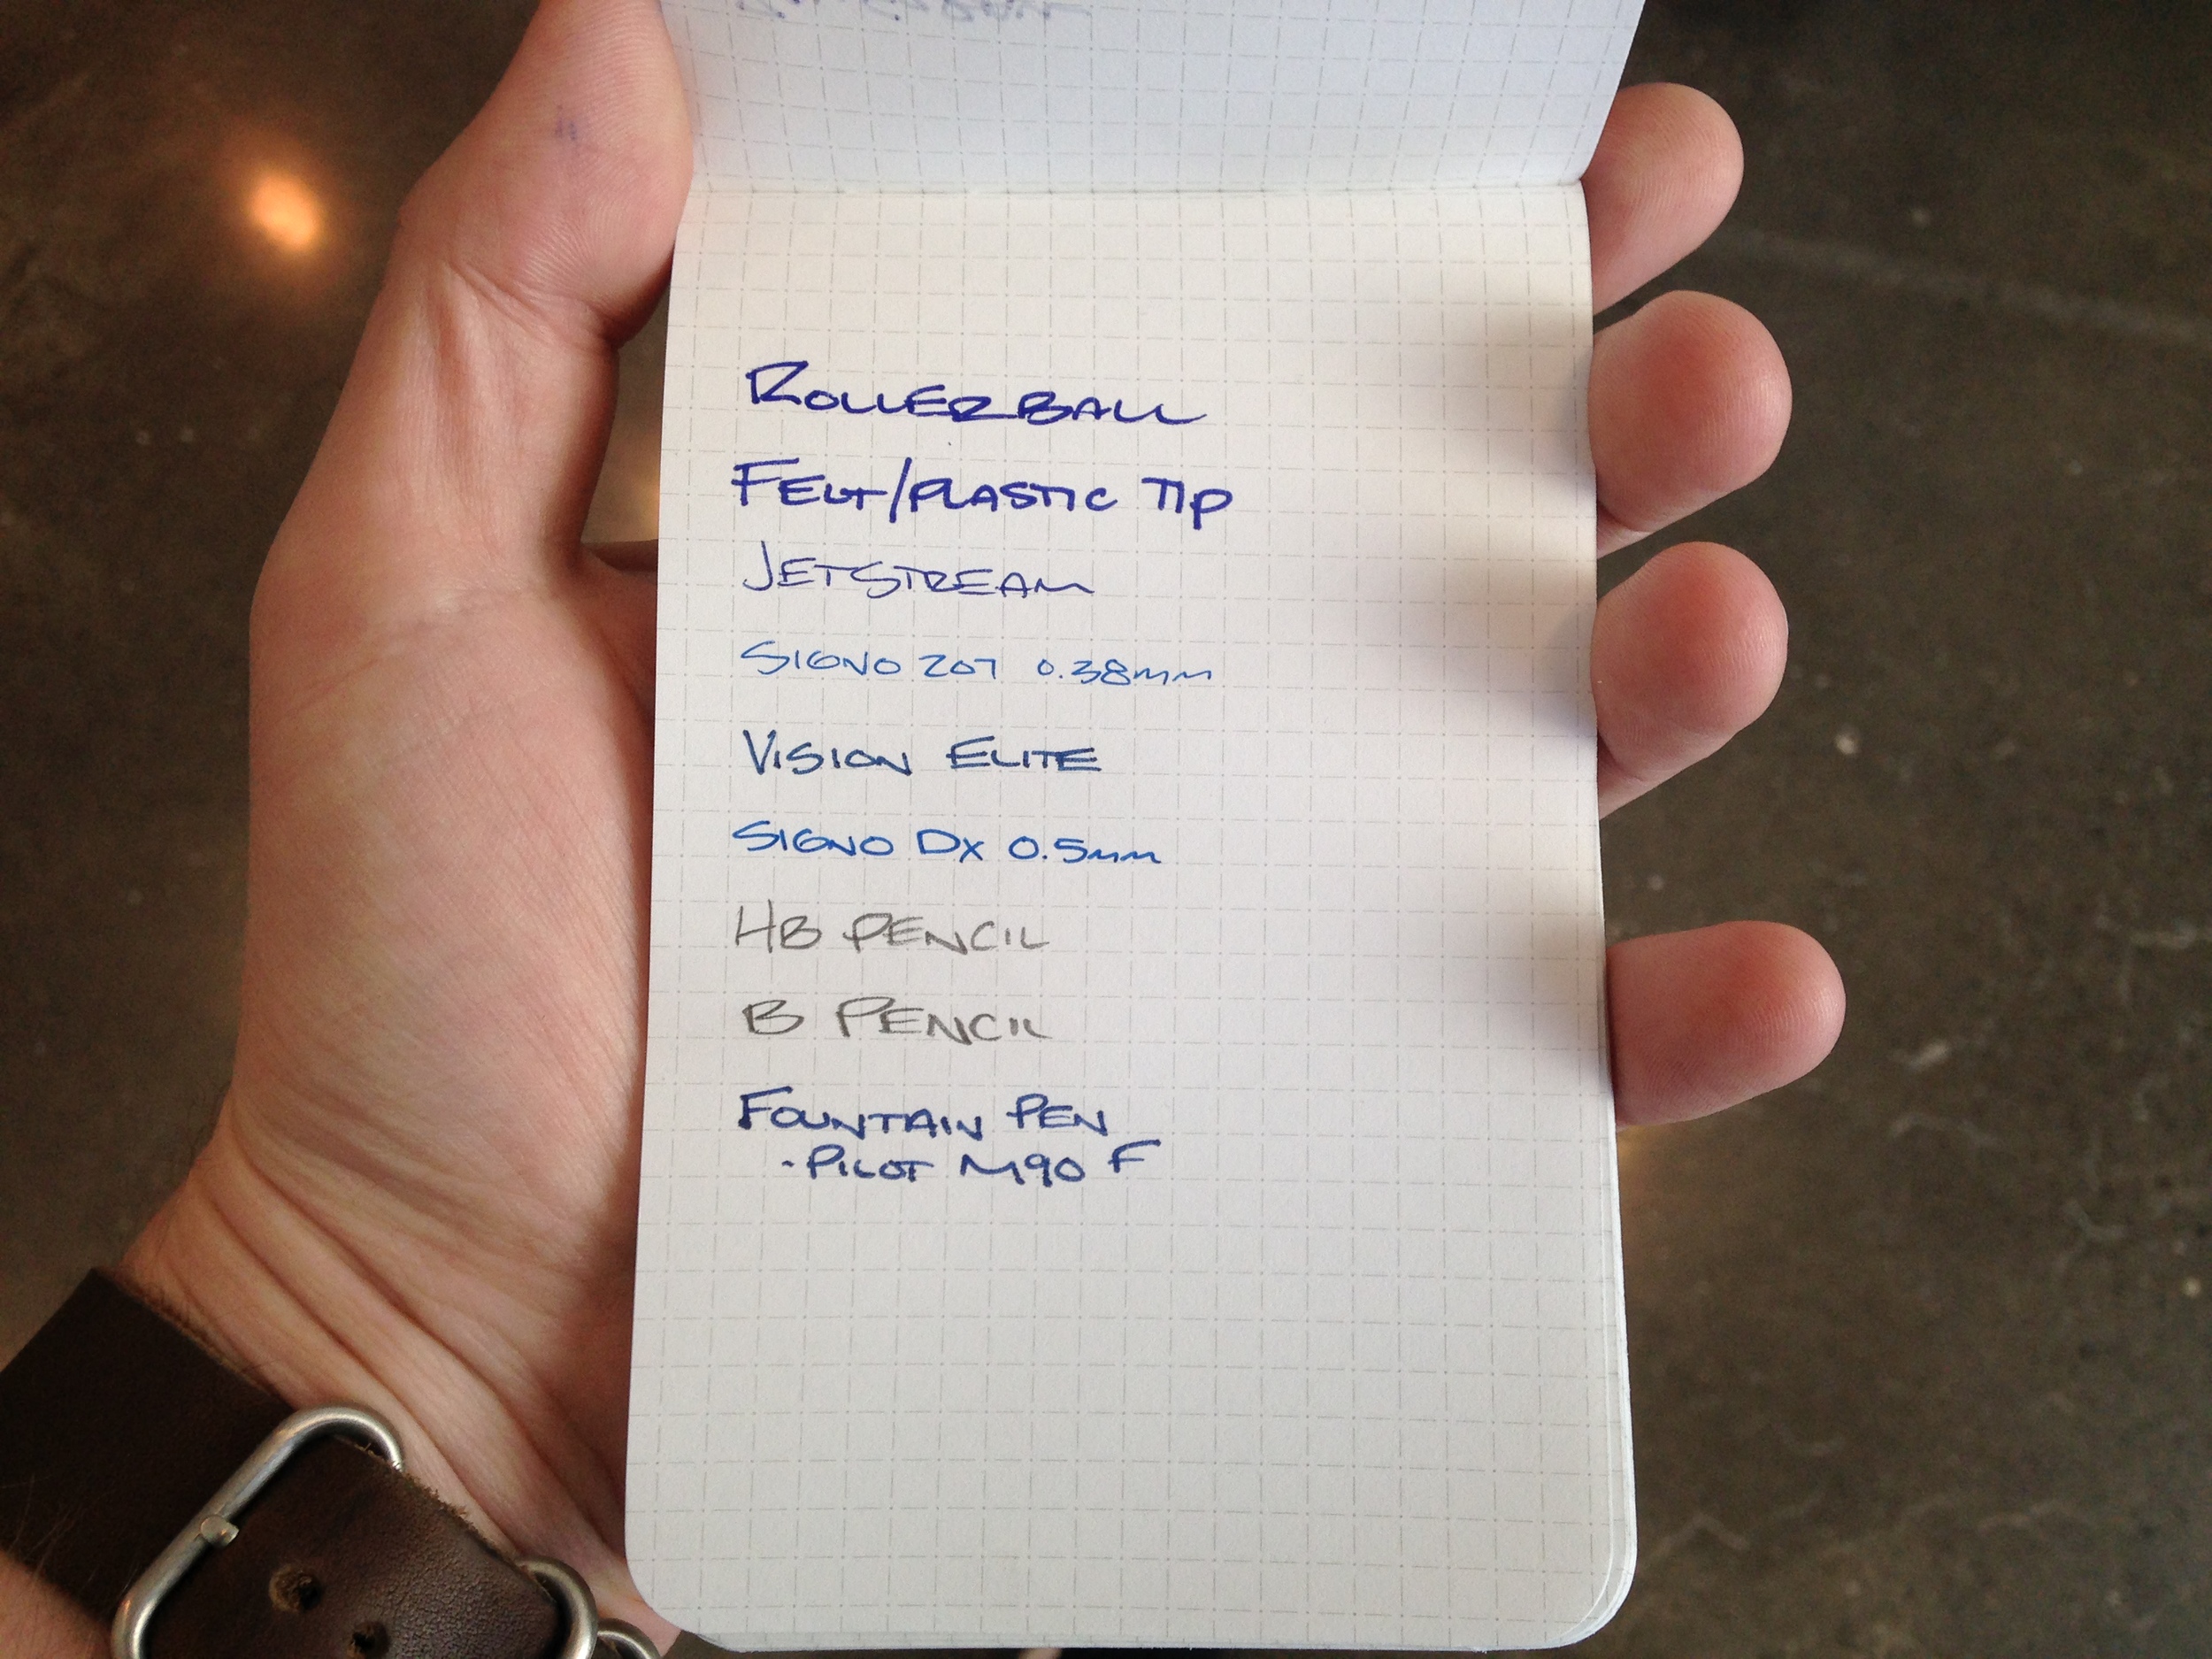 ROLLERBALL
FELT/PLASTIC TIP
JETSTREAM
SIGNO 207 0.38mm
VISION ELITE
SIGNO DX 0.5mm
HB PENCIL
B PENCIL
FOUNTAIN PEN
- PILOT M90 F